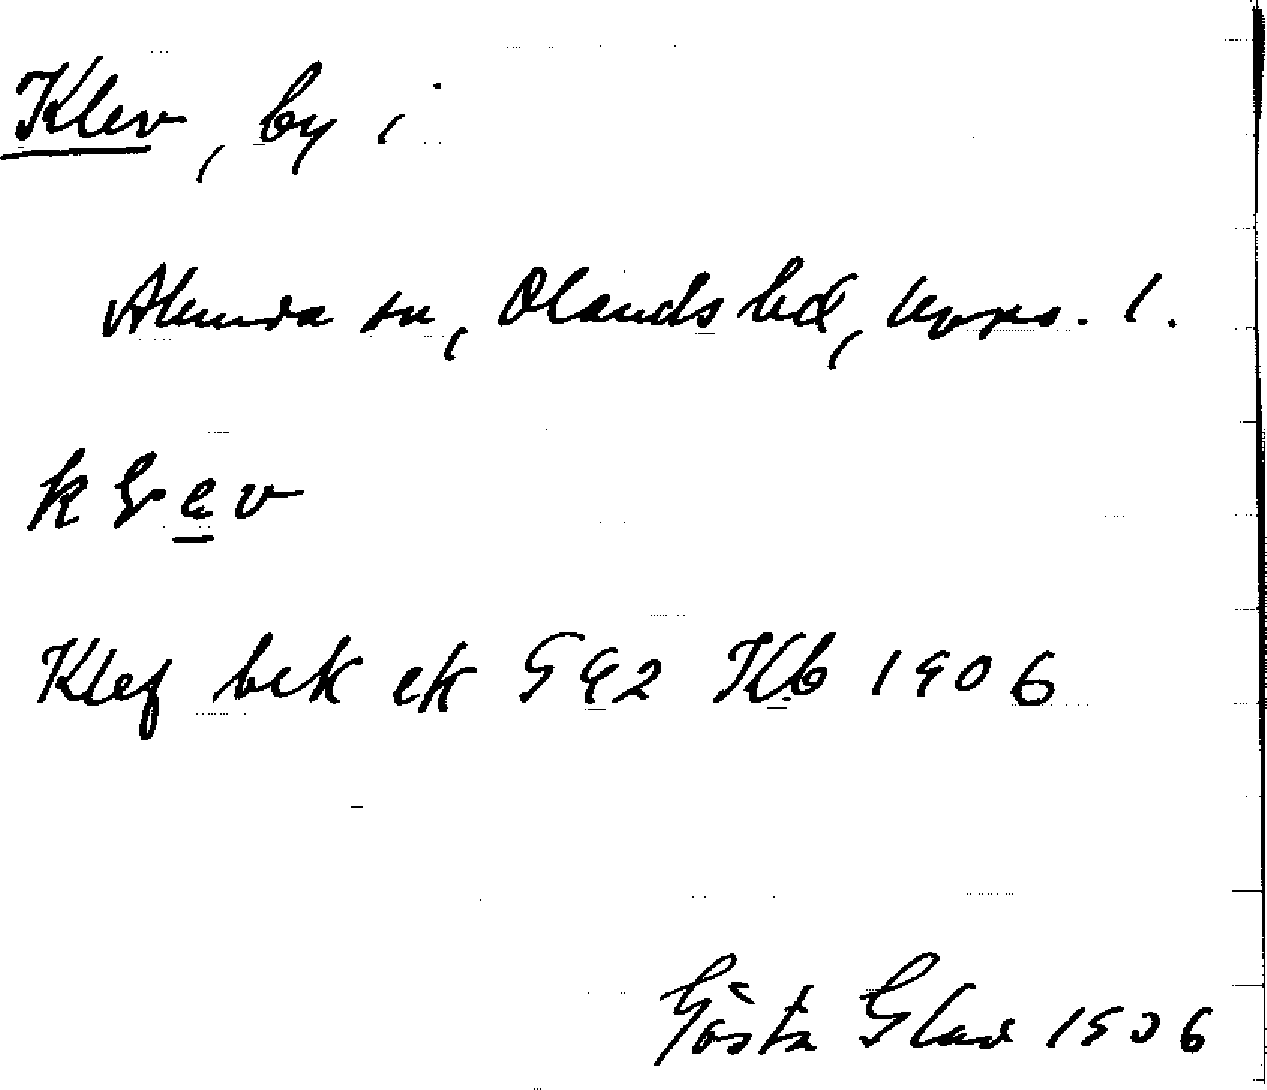 Klev, by i
Alunda sn, Olands hd, Upps. l.
Klef bek ek 5 92 Kb 1906
Gösta Glad 1906